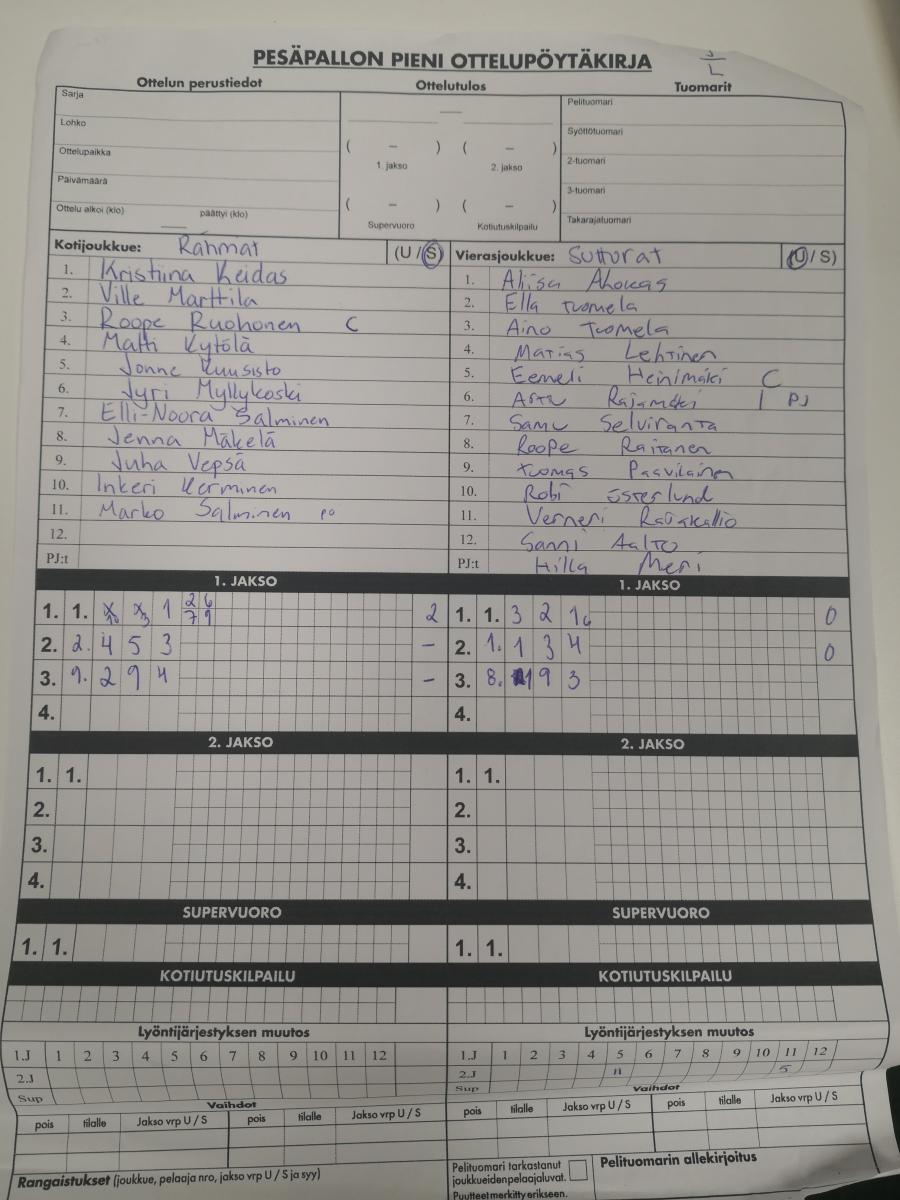 PESÄPALLON PIENI OTTELUPÖYTÄKIRJA
Ottelun perustiedot Ottelutulos Tuomarit
Sarja
Lohko
Ottelupaikka
Päivämäärä
Ottelu alkoi (klo) päättyi (klo)
( – ) ( – )
1. jakso 2. jakso
( – ) ( – )
Supervuoro Kotiutuskilpailu
Pelituomari
Syöttötuomari
2-tuomari
3-tuomari
Takarajatuomari
Kotijoukkue: Rahmat (U / S)
1. Kristiina Keidas
2. Ville Marttila
3. Roope Ruohonen C
4. Matti Kytölä
5. Jonne Kuusisto
6. Jyri Myllykoski
7. Elli-Noora Salminen
8. Jenna Mäkelä
9. Juha Vepsä
10. Inkeri Kerminen
11. Marko Salminen
12.
PJ:t
Vierasjoukkue: Sutturat (U / S)
1. Aliisa Ahokas
2. Ella Tuomela
3. Aino Tuomela
4. Matias Lehtinen
5. Eemeli Heinimäki C
6. Arttu Rajamäki | PJ
7. Samu Selviranta
8. Roope Raitanen
9. Tuomas Paavilainen
10. Robi Österlund
11. Verneri Rajakallio
12. Sanni Aalto
PJ:t Hilla Meri
1. JAKSO 1. JAKSO
1. 1. x x 1 2 6 2
10 3 7 9
2. 2. 4 5 3 –
3. 9. 2 9 4 –
4.
1. 1. 3 2 1 6 0
2. 1. 1 3 4 0
3. 8. 1 9 3
4.
2. JAKSO 2. JAKSO
1. 1. 1. 1.
2. 2.
3. 3.
4. 4.
SUPERVUORO SUPERVUORO
1. 1. 1. 1.
KOTIUTUSKILPAILU KOTIUTUSKILPAILU
Lyöntijärjestyksen muutos Lyöntijärjestyksen muutos
1.J 1 2 3 4 5 6 7 8 9 10 11 12 1.J 1 2 3 4 5 6 7 8 9 10 11 12
2.J 2.J 11 5
Sup Sup
Vaihdot Vaihdot
pois tilalle Jakso vrp U / S pois tilalle Jakso vrp U / S pois tilalle Jakso vrp U / S pois tilalle Jakso vrp U / S
Rangaistukset (joukkue, pelaaja nro, jakso vrp U / S ja syy)
Pelituomari tarkastanut
joukkueiden pelaajaluvat.
Puutteet merkitty erikseen.
Pelituomarin allekirjoitus